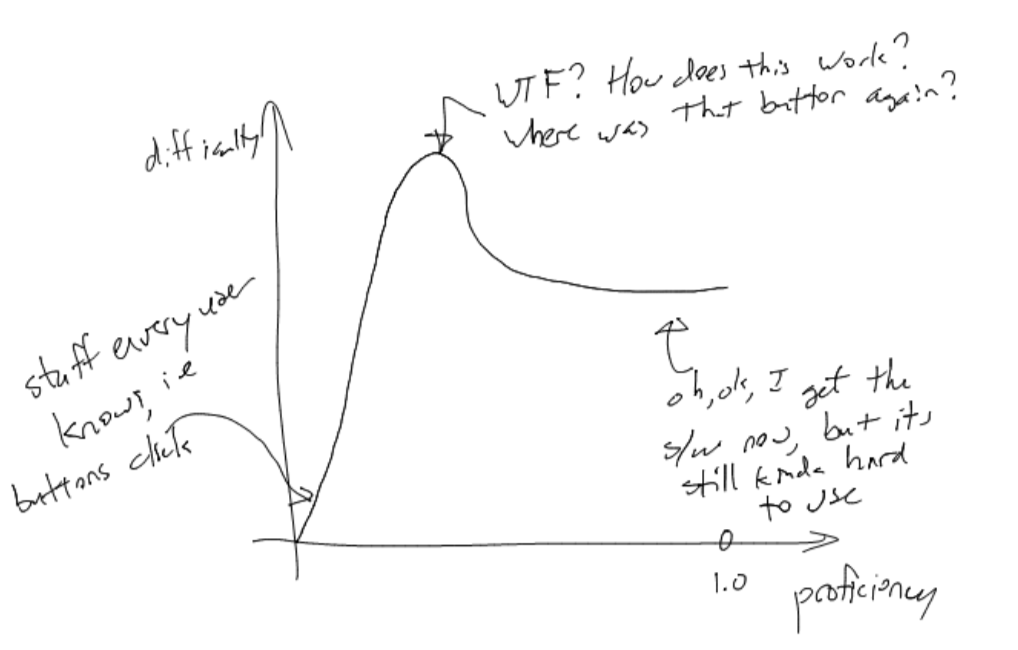 WTF? How does this work?
where was that button again?
difficulty
stuff every user
knows, ie
buttons click
oh, ok, I get the
s/w now, but its
still kinda hard
to use
1.0
proficiency